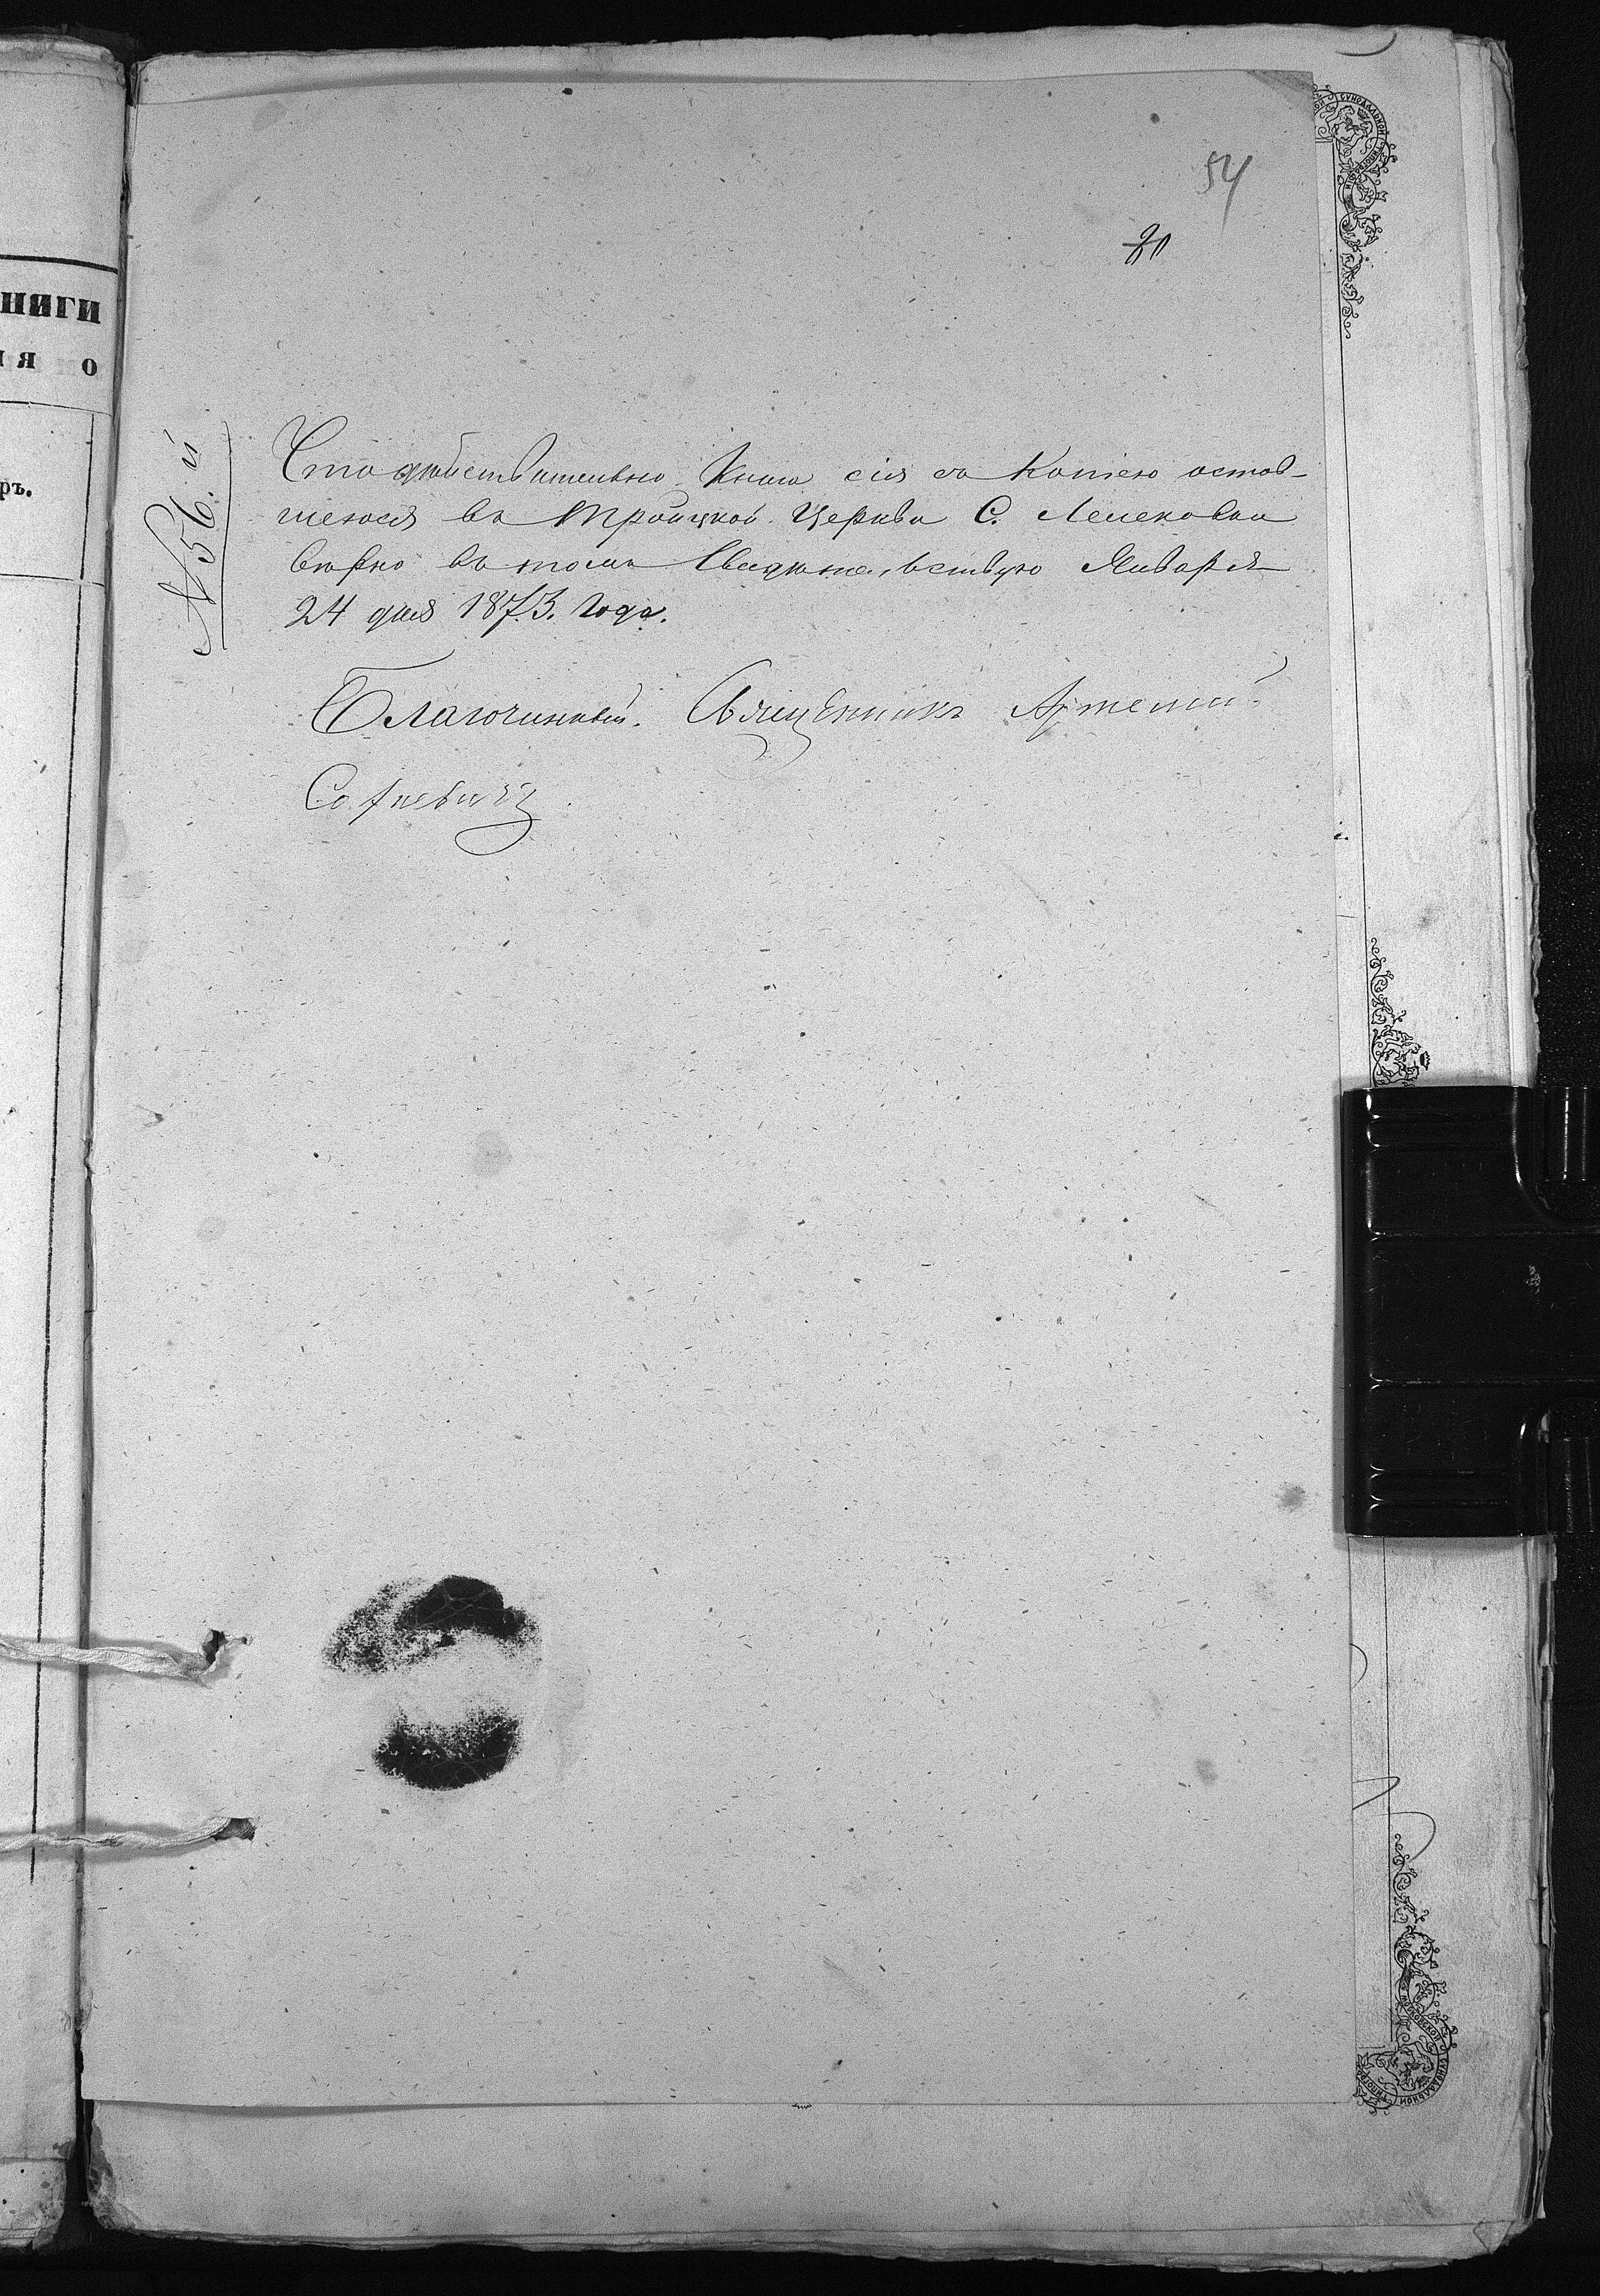 54
20
НИГИ
ія о
ръ.
№ 56.й
Что действительно Книга сія съ Копіею остав-
шеюся въ Троицкой Церкви С. Лемековки
вѣрно въ томъ Свидѣтельствую Января
24 дня 1873. Года.
Благочинный. Священникъ Артемій